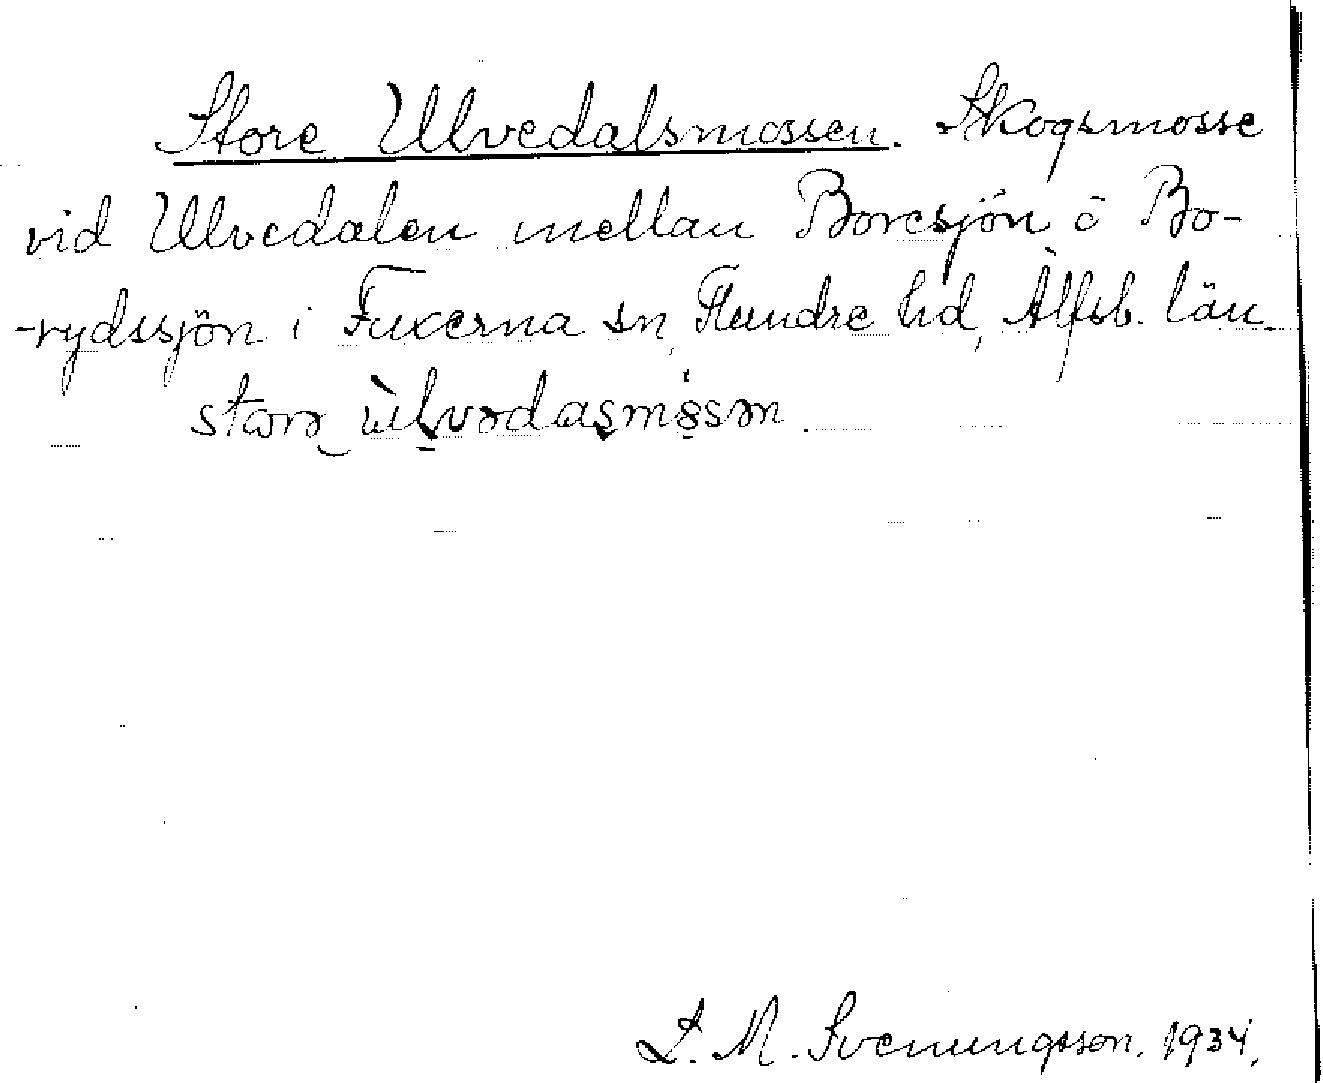 Store Ulvedalsmossen. Skogsmosse
vid Ulvedalen mellan Boresjön o Bo-
-rydssjön i Fuxerna sn, Flundre hd, Älfsb. län.
L. M. Svenungsson. 1934.